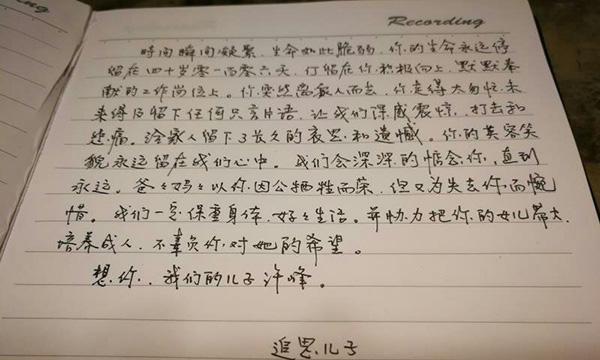 Recording
时间瞬间凝聚,生命如此脆弱,你的生命永远停
留在四十岁零一百零六天,仃留在你积极向上、默默奉
献的工作岗位上。你突然离家人而去,你走得太匆忙,未
来得及留下任何只言片语,让我们深感震惊、打击和
悲痛。给家人留下了长久的哀思和遗憾。你的英容笑
貌永远留在我们心中。我们会深深的惦念你,直到
永远。爸々妈々以你因公牺牲而荣,但又为失去你而惋
惜。我们一定保重身体,好々生活。并协力把你的女儿带大
培养成人,不辜负你对她的希望。
想你..我们的儿子许峰。
追思儿子